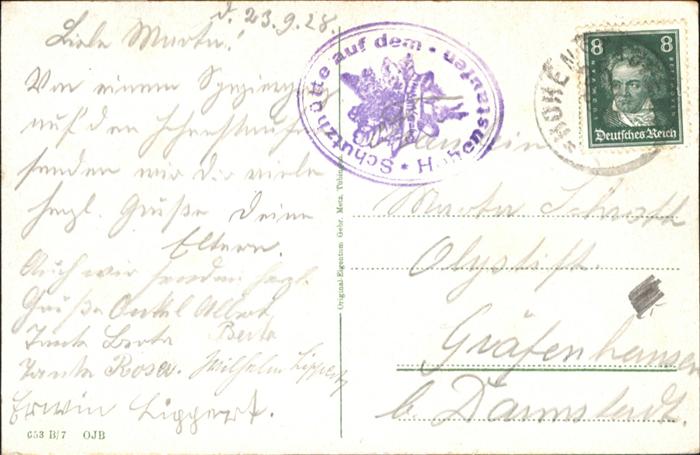 d. 23.9.28.
Liebe Marta!
Von einem Spaziergang
auf den Hohenstaufen
senden wir Dir viele
herzl. Grüße Deine
Eltern.
Auch wir senden herzl.
Grüße Onkel Albert
Tante Berta Berta
Tante Rosa. Wilhelm Lippert
Erwin Lippert.
653 B/7 OJB
Original-Eigentum Gebr. Metz, Tübingen
Schutzhütte auf dem · Hohenstaufen ·
HOHEN
8 8
Deutsches Reich
Fräulein
Marta Schroth
Olystift
Gräfenhausen
b. Darmstadt.